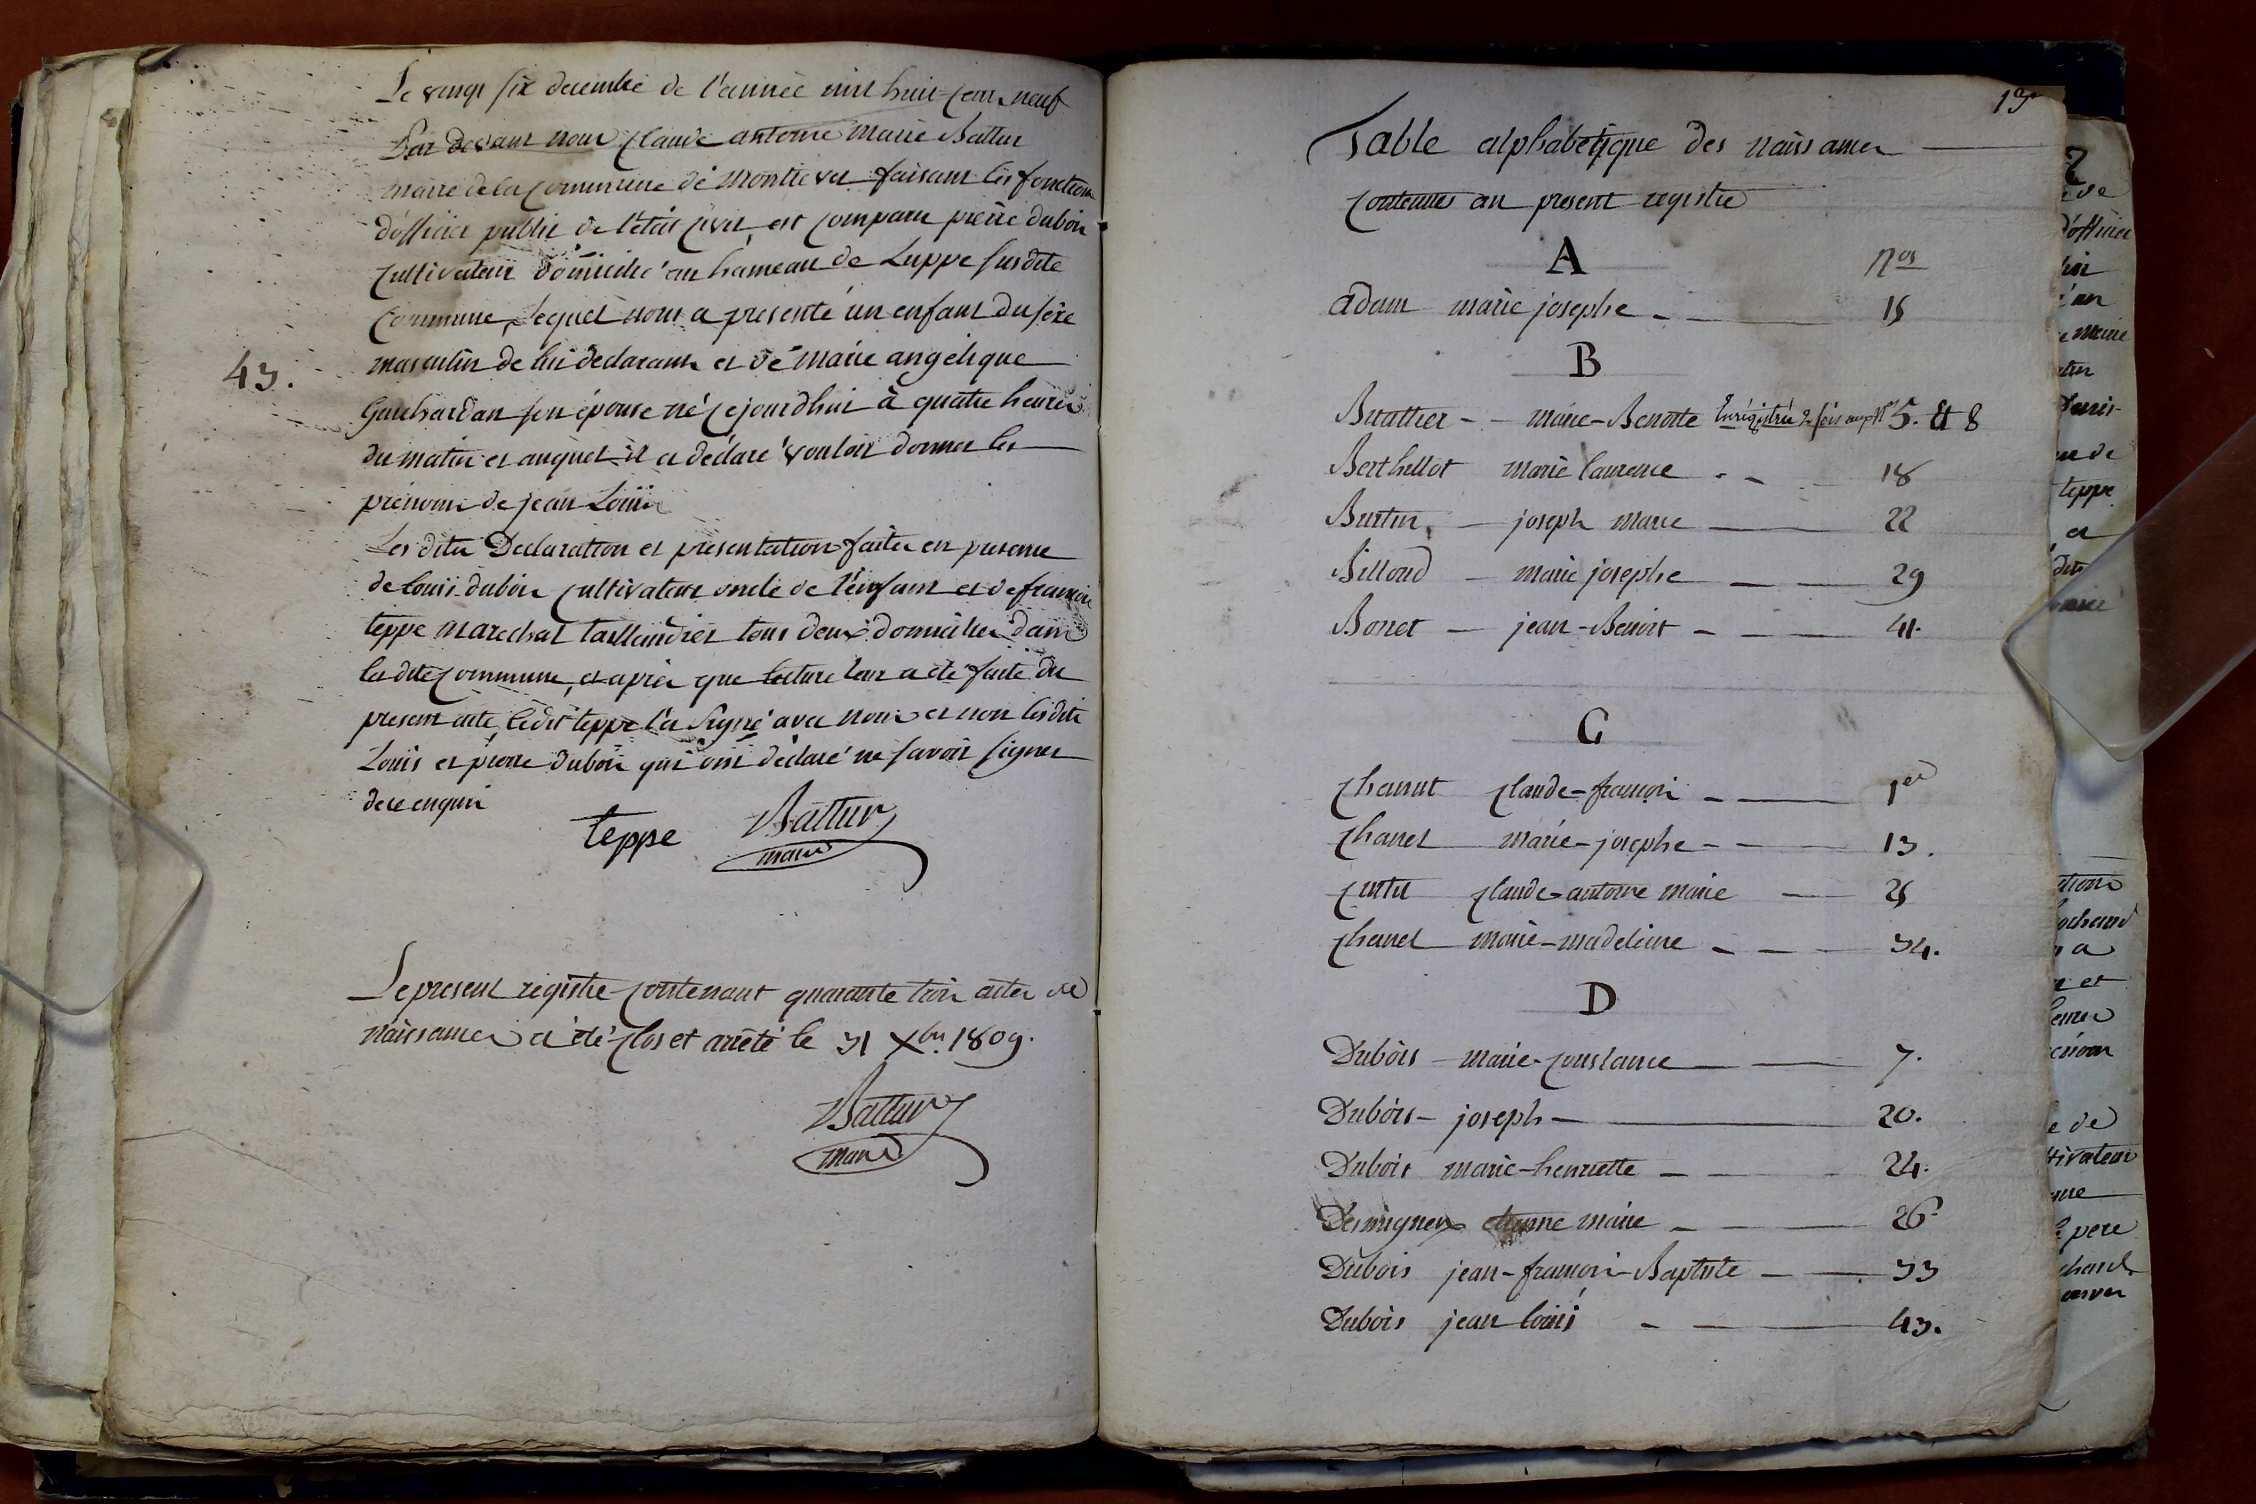 Le vingt six decembre de l'année mil huit-cent neuf
Par devant nous claude antoine marie Battur
maire de la commune de Montrevel faisant les fonctions
d'officier public de l'état civil, est comparu pierre dubois
cultivateur domicilié au hameau de Luppe susdite
commune, lequel nous a presenté un enfant du sexe
43.
masculin de lui declarant et de Marie angelique
son épouse né cejourdhui à quatre heures
du matin et auquel il a déclaré vouloir donner les
prénoms de jean Louis
Les dites Declaration et présentation faites en presence
de louis dubois cultivateur oncle de l'enfant et de francois
teppe marechal taillandier tous deux domicilies dans
la dite commune, et après que lecture leur a été faite du
present acte, ledit teppe l'a signé avec nous et non lesdits
Louis et pierre dubois qui ont déclaré ne savoir signer
de ce enquis
teppe Battur
maire
Le present registre contenant quarante trois actes de
naissances a été clos et arrêté le 31 Xbre 1809.
Battur
maire
Table alphabetique des naissances
contenues au present registre
A nos
adam marie josephe - 15
B
marie-Benoite Enrégistrée 2 fois aux Nos 5. et 8
Berthellot marie laurence - 18
Burtin - joseph marie - 22
Billoud - marie josephe - 29
Bonet - jean-Benoit - 41.
C
Chanut claude-francois - 1er
Chanel marie-josephe - 13.
claude-antoine marie - 25
Chanel marie-madeleine - 34.
D
Dubois - marie-constance - 7.
Dubois - joseph - 20.
Dubois marie-henriette - 24.
etienne marie - 26
Dubois jean-francois-Baptiste - 33
Dubois jean louis - 43.